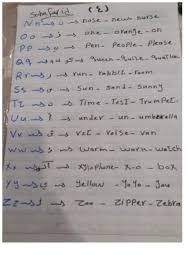 (٤)
Nn → ن → nose - new nurse
Oo → و → one - orange - on
PP → پ → Pen - People - Please
Qq → Queen - Quite -
Rr → ر → run - rabbit - room
Ss → س → Sun - sand - sunny
Tt → ت → Time - Test - Trumpet
Uu → under - un - umbrella
Vv → ڤ → vet - voise - van
ww → و → warm - warn - watch
Xx → اكس → xylophone - x-o - box
Yy → ي → yellow - yoyo -
Zz → ز → Zoo - Zipper - Zebra